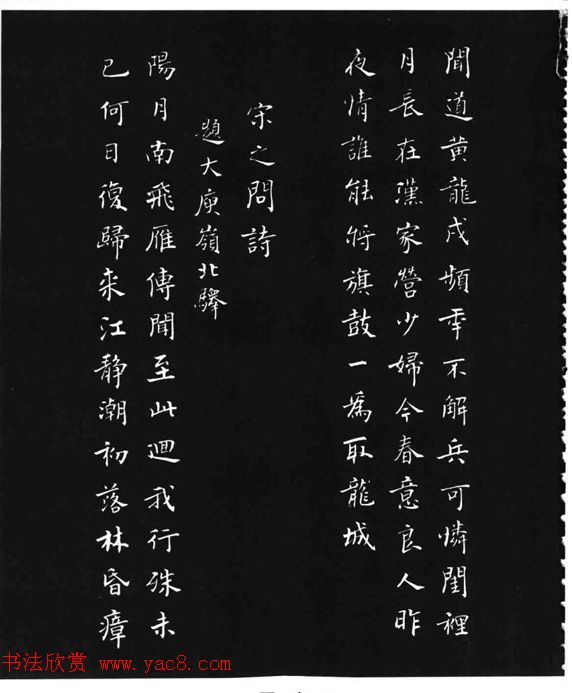 聞道黃龍戍頻年不解兵可憐閨裡
月長在漢家營少婦今春意良人昨
夜情誰能將旗鼓一為取龍城
宋之問詩
題大庾嶺北驛
陽月南飛雁傳聞至此迴我行殊未
已何日復歸来江静潮初落林昏瘴
书法欣赏 www.yac8.com